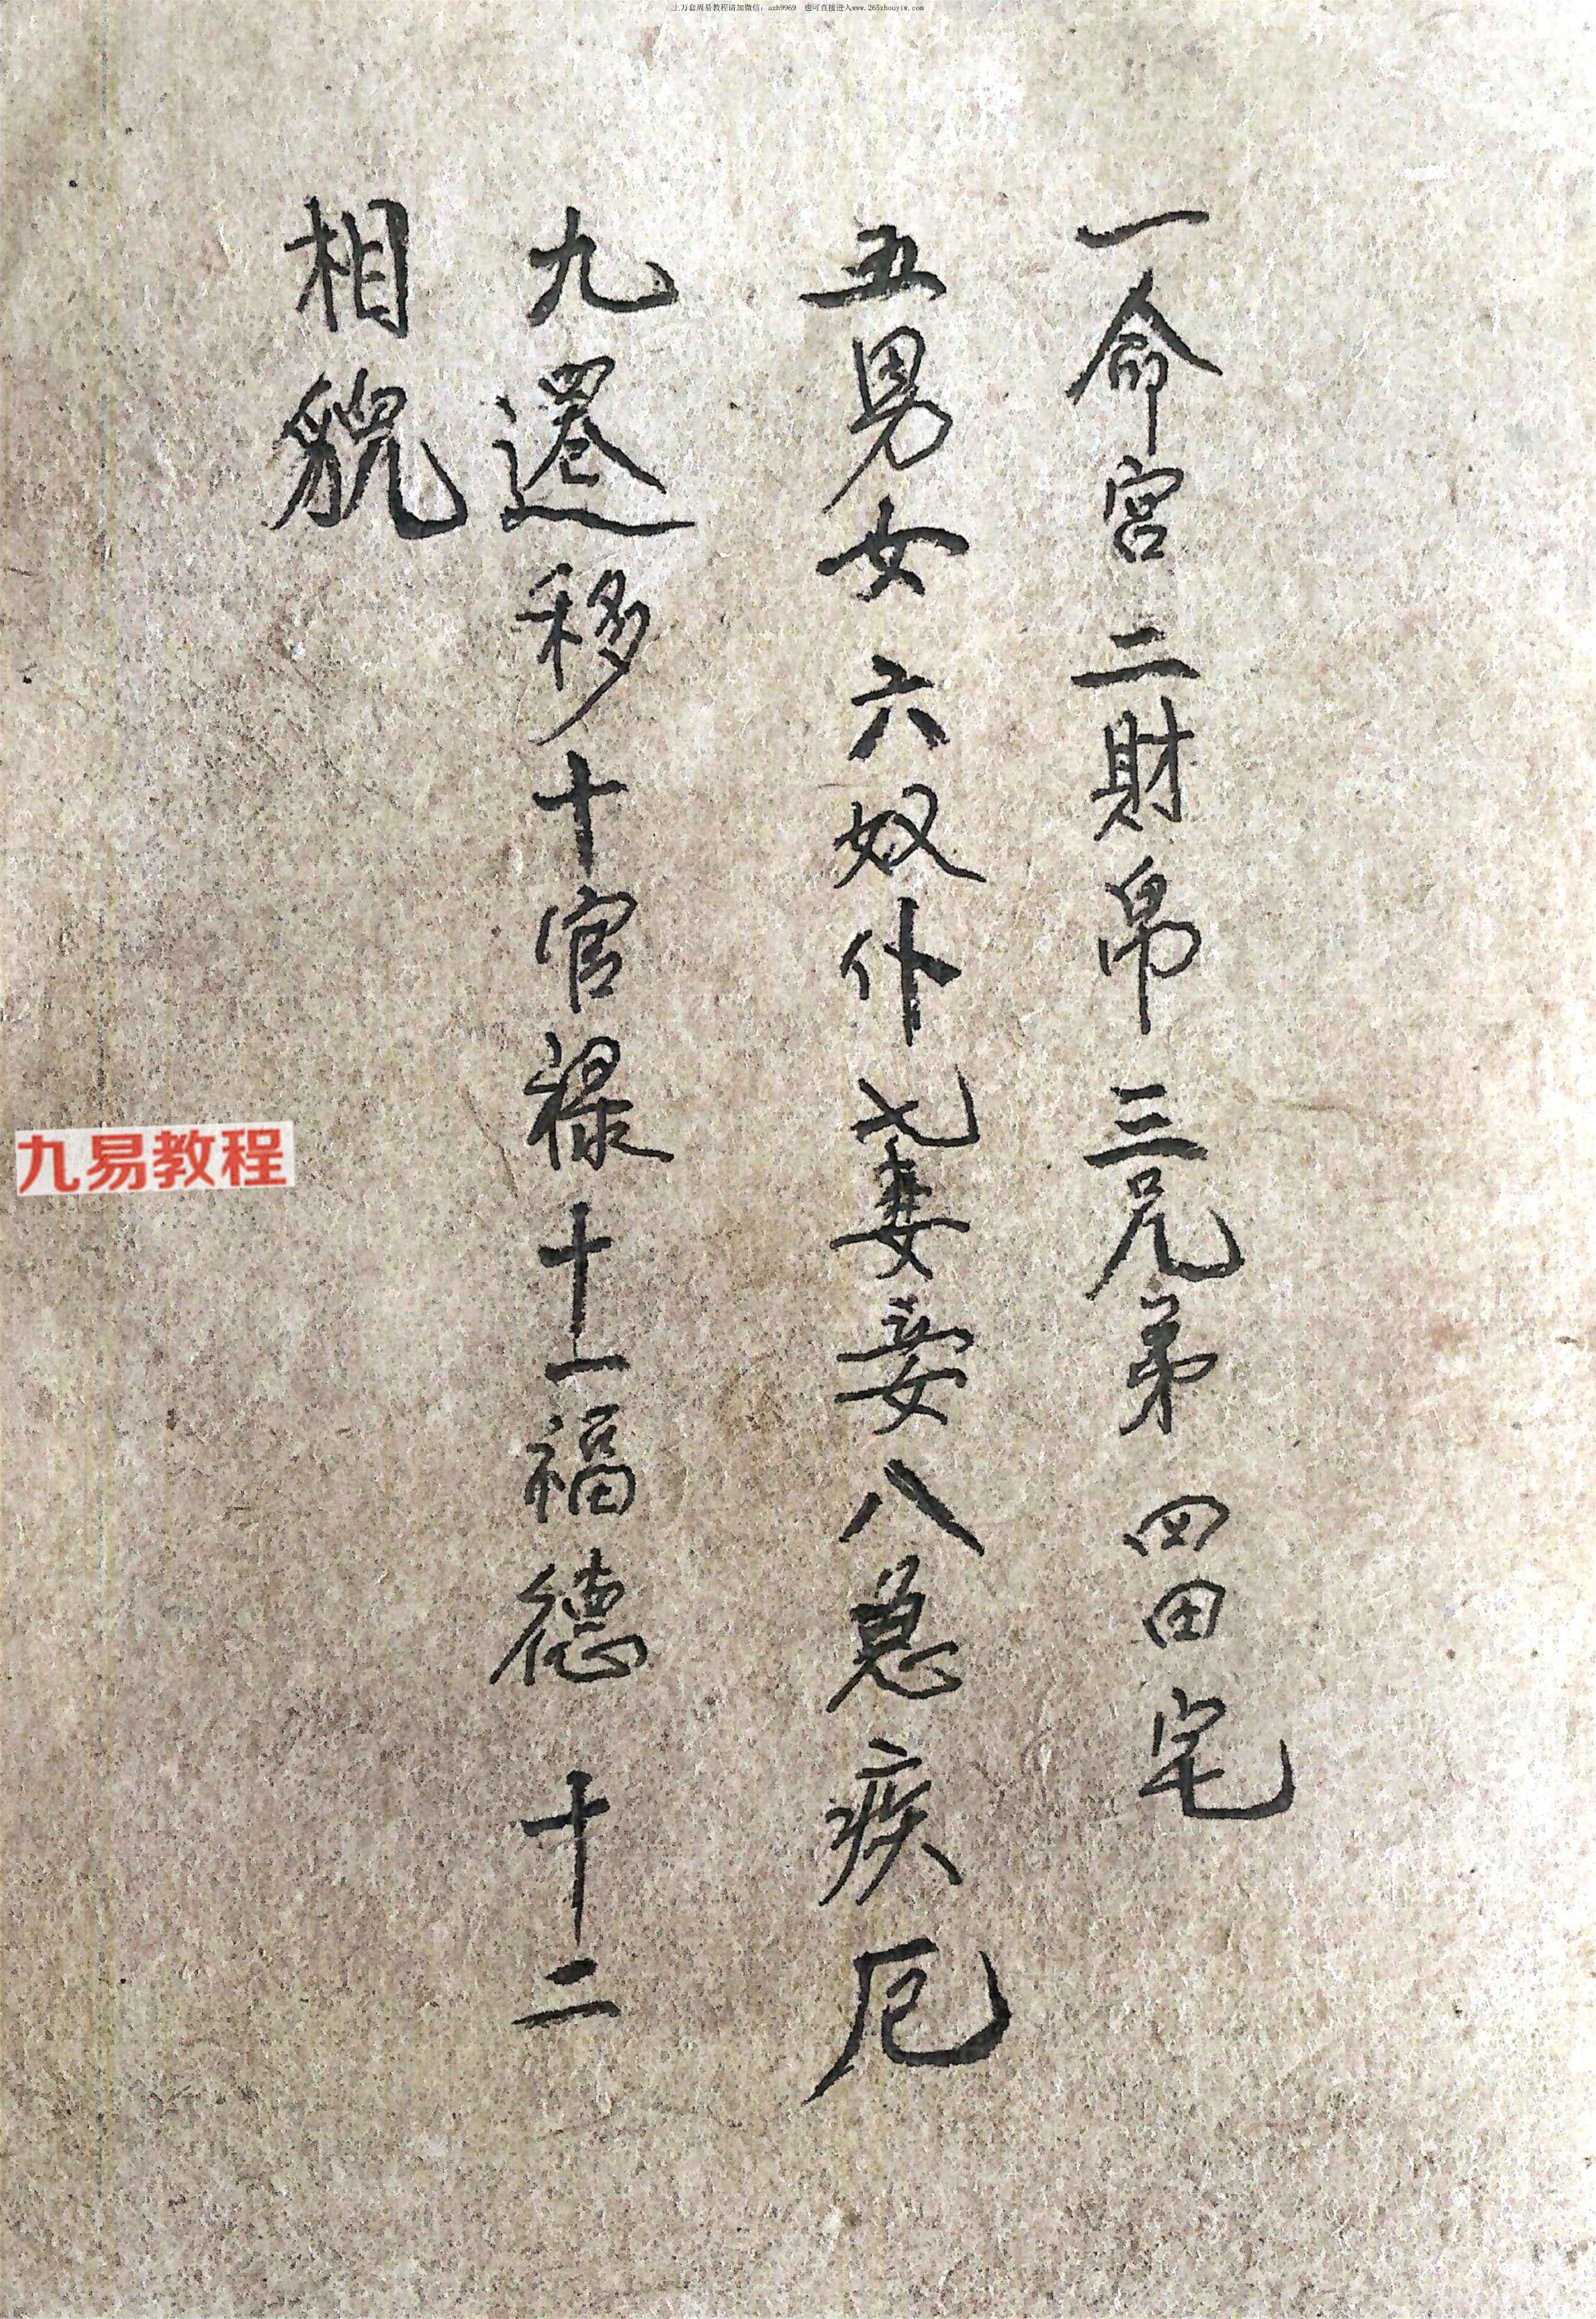 上万套周易教程请加微信：azh9969 也可直接进入www.265zhouyiw.com
一命宫二財帛三兄弟四田宅
五男女六奴仆七妻妾八急疾厄
九遷移十官禄十一福德十二
相貌
九易教程